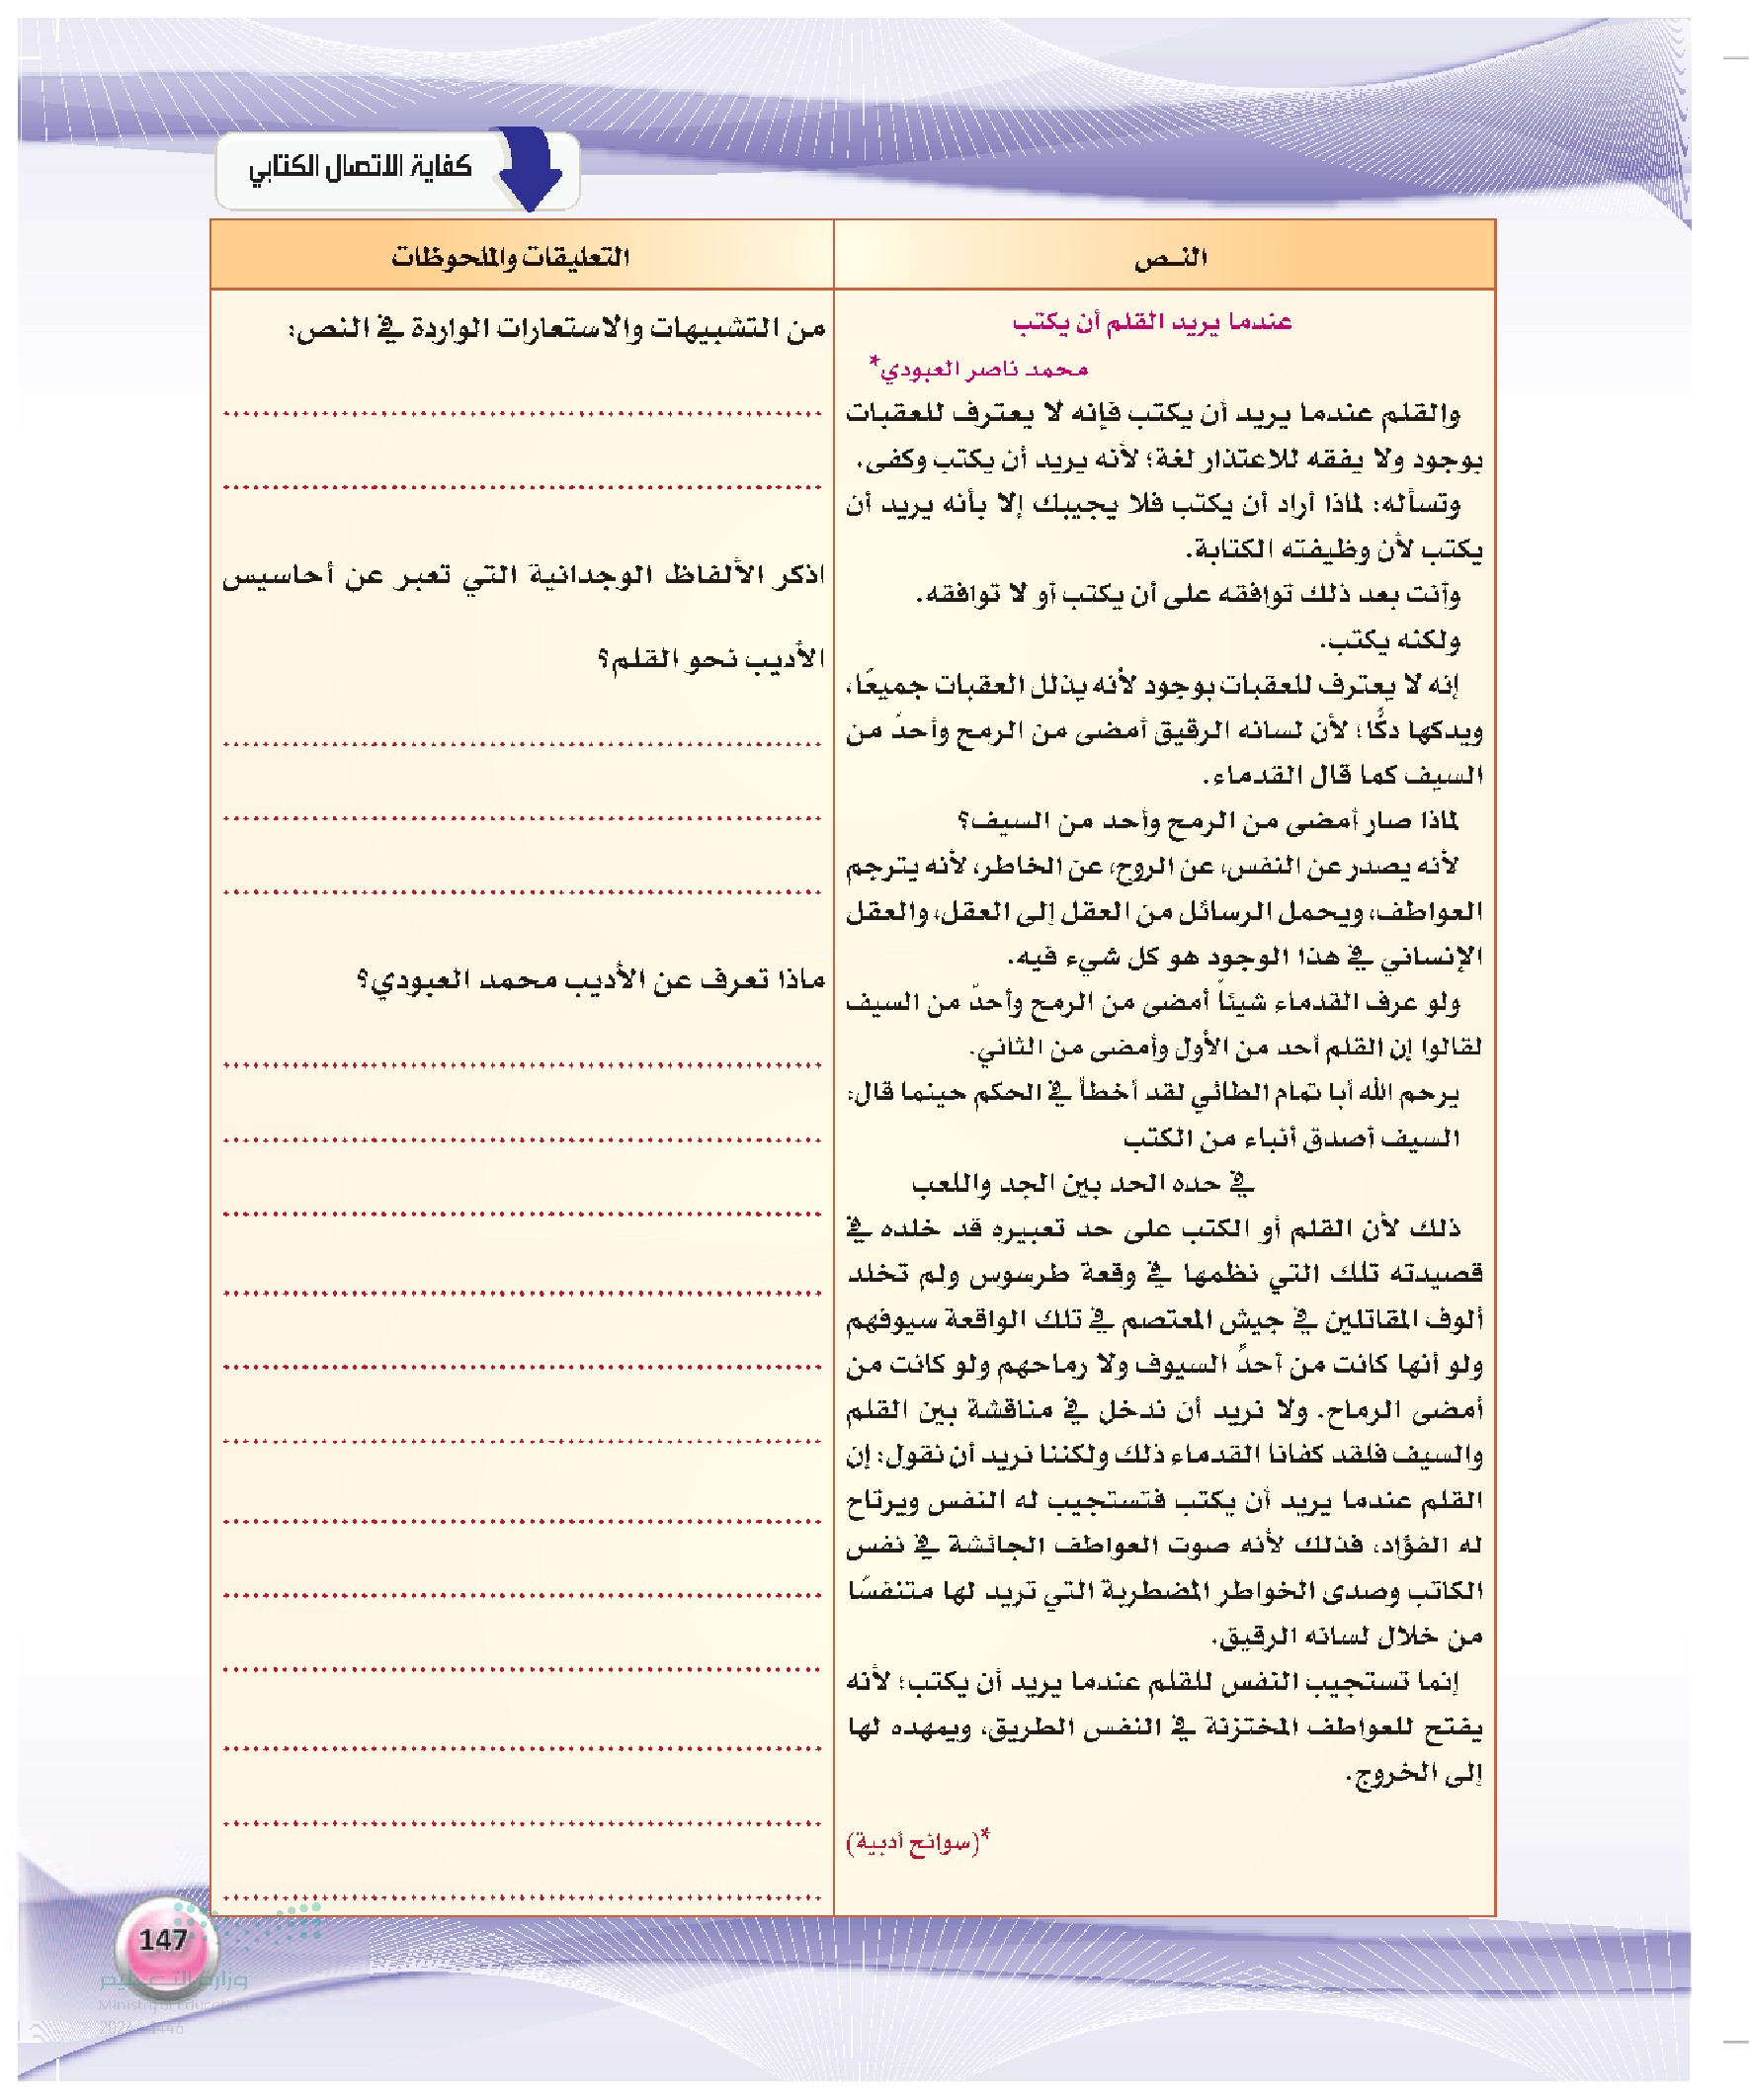 كفاية الاتصال الكتابي
النــص
التعليقات والملحوظات
عندما يريد القلم أن يكتب
محمد ناصر العبودي*
والقلم عندما يريد أن يكتب فإنه لا يعترف للعقبات
بوجود ولا يفقه للاعتذار لغة؛ لأنه يريد أن يكتب وكفى.
وتسأله: لماذا أراد أن يكتب فلا يجيبك إلا بأنه يريد أن
يكتب لأن وظيفته الكتابة.
وأنت بعد ذلك توافقه على أن يكتب أو لا توافقه.
ولكنه يكتب.
إنه لا يعترف للعقبات بوجود لأنه يذلل العقبات جميعًا،
ويدكها دكًّا؛ لأن لسانه الرقيق أمضى من الرمح وأحدّ من
السيف كما قال القدماء.
لماذا صار أمضى من الرمح وأحد من السيف؟
لأنه يصدر عن النفس، عن الروح، عن الخاطر، لأنه يترجم
العواطف، ويحمل الرسائل من العقل إلى العقل، والعقل
الإنساني في هذا الوجود هو كل شيء فيه.
ولو عرف القدماء شيئاً أمضى من الرمح وأحدّ من السيف
لقالوا إن القلم أحد من الأول وأمضى من الثاني.
يرحم الله أبا تمام الطائي لقد أخطأ في الحكم حينما قال:
السيف أصدق أنباء من الكتب
في حده الحد بين الجد واللعب
ذلك لأن القلم أو الكتب على حد تعبيره قد خلده في
قصيدته تلك التي نظمها في وقعة طرسوس ولم تخلد
ألوف المقاتلين في جيش المعتصم في تلك الواقعة سيوفهم
ولو أنها كانت من أحدِّ السيوف ولا رماحهم ولو كانت من
أمضى الرماح. ولا نريد أن ندخل في مناقشة بين القلم
والسيف فلقد كفانا القدماء ذلك ولكننا نريد أن نقول: إن
القلم عندما يريد أن يكتب فتستجيب له النفس ويرتاح
له الفؤاد، فذلك لأنه صوت العواطف الجائشة في نفس
الكاتب وصدى الخواطر المضطربة التي تريد لها متنفسًا
من خلال لسانه الرقيق.
إنما تستجيب النفس للقلم عندما يريد أن يكتب؛ لأنه
يفتح للعواطف المختزنة في النفس الطريق، ويمهده لها
إلى الخروج.
*(سوانح أدبية)
من التشبيهات والاستعارات الواردة في النص:
اذكر الألفاظ الوجدانية التي تعبر عن أحاسيس
الأديب نحو القلم؟
ماذا تعرف عن الأديب محمد العبودي؟
147
وزارة التعليم
Ministry of Education
2024 - 1446